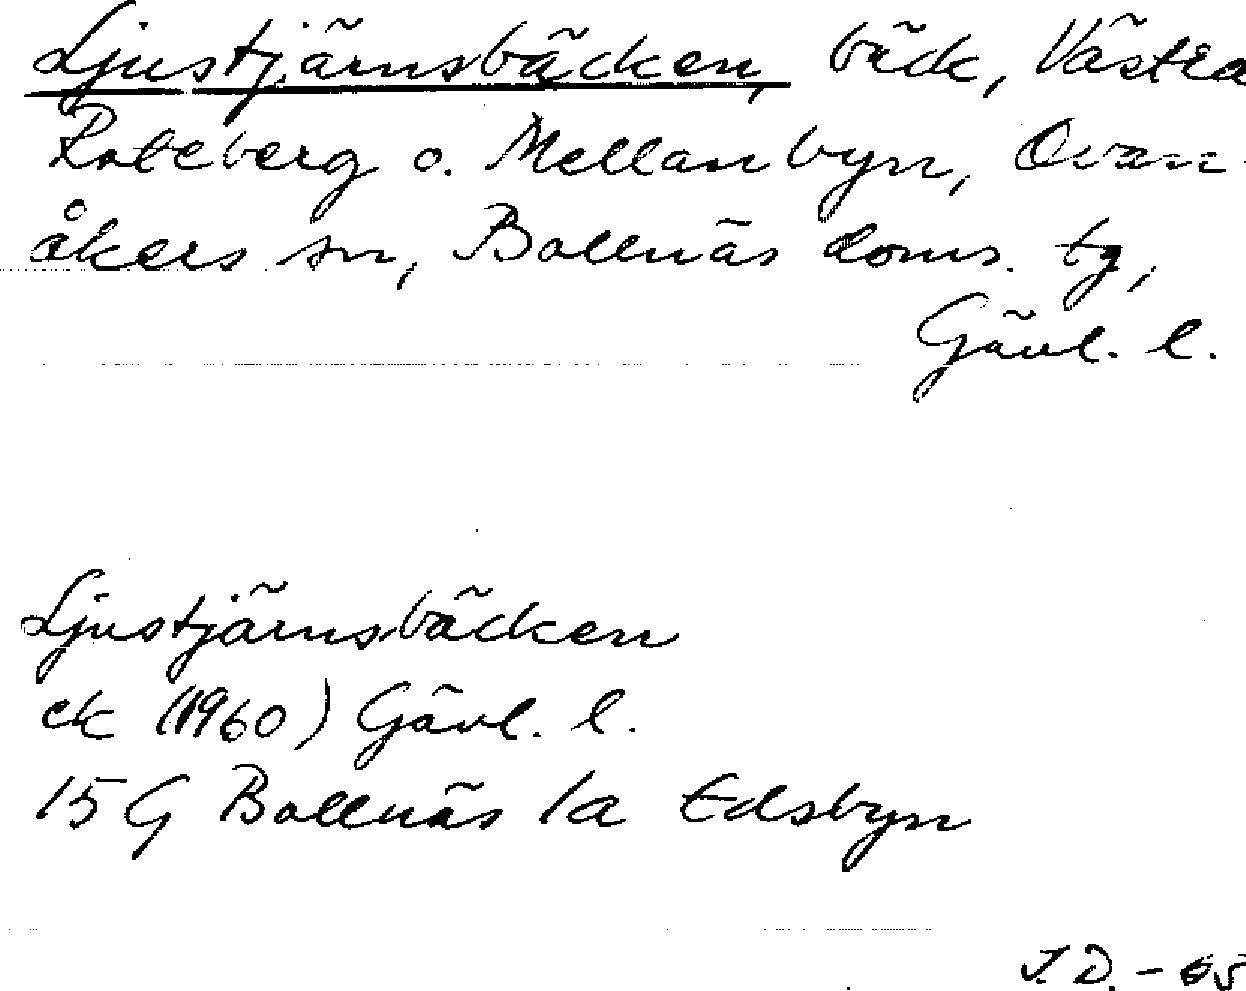 Ljustjärnsbäcken, bäck, Västra
Roteberg o. Mellanbyn, Ovan-
åkers sn, Bollnäs doms. tg,
Gävl. l.
Ljustjärnsbäcken
ek (1960) Gävl. l.
15 G Bollnäs 1a Edsbyn
J. D. - 65